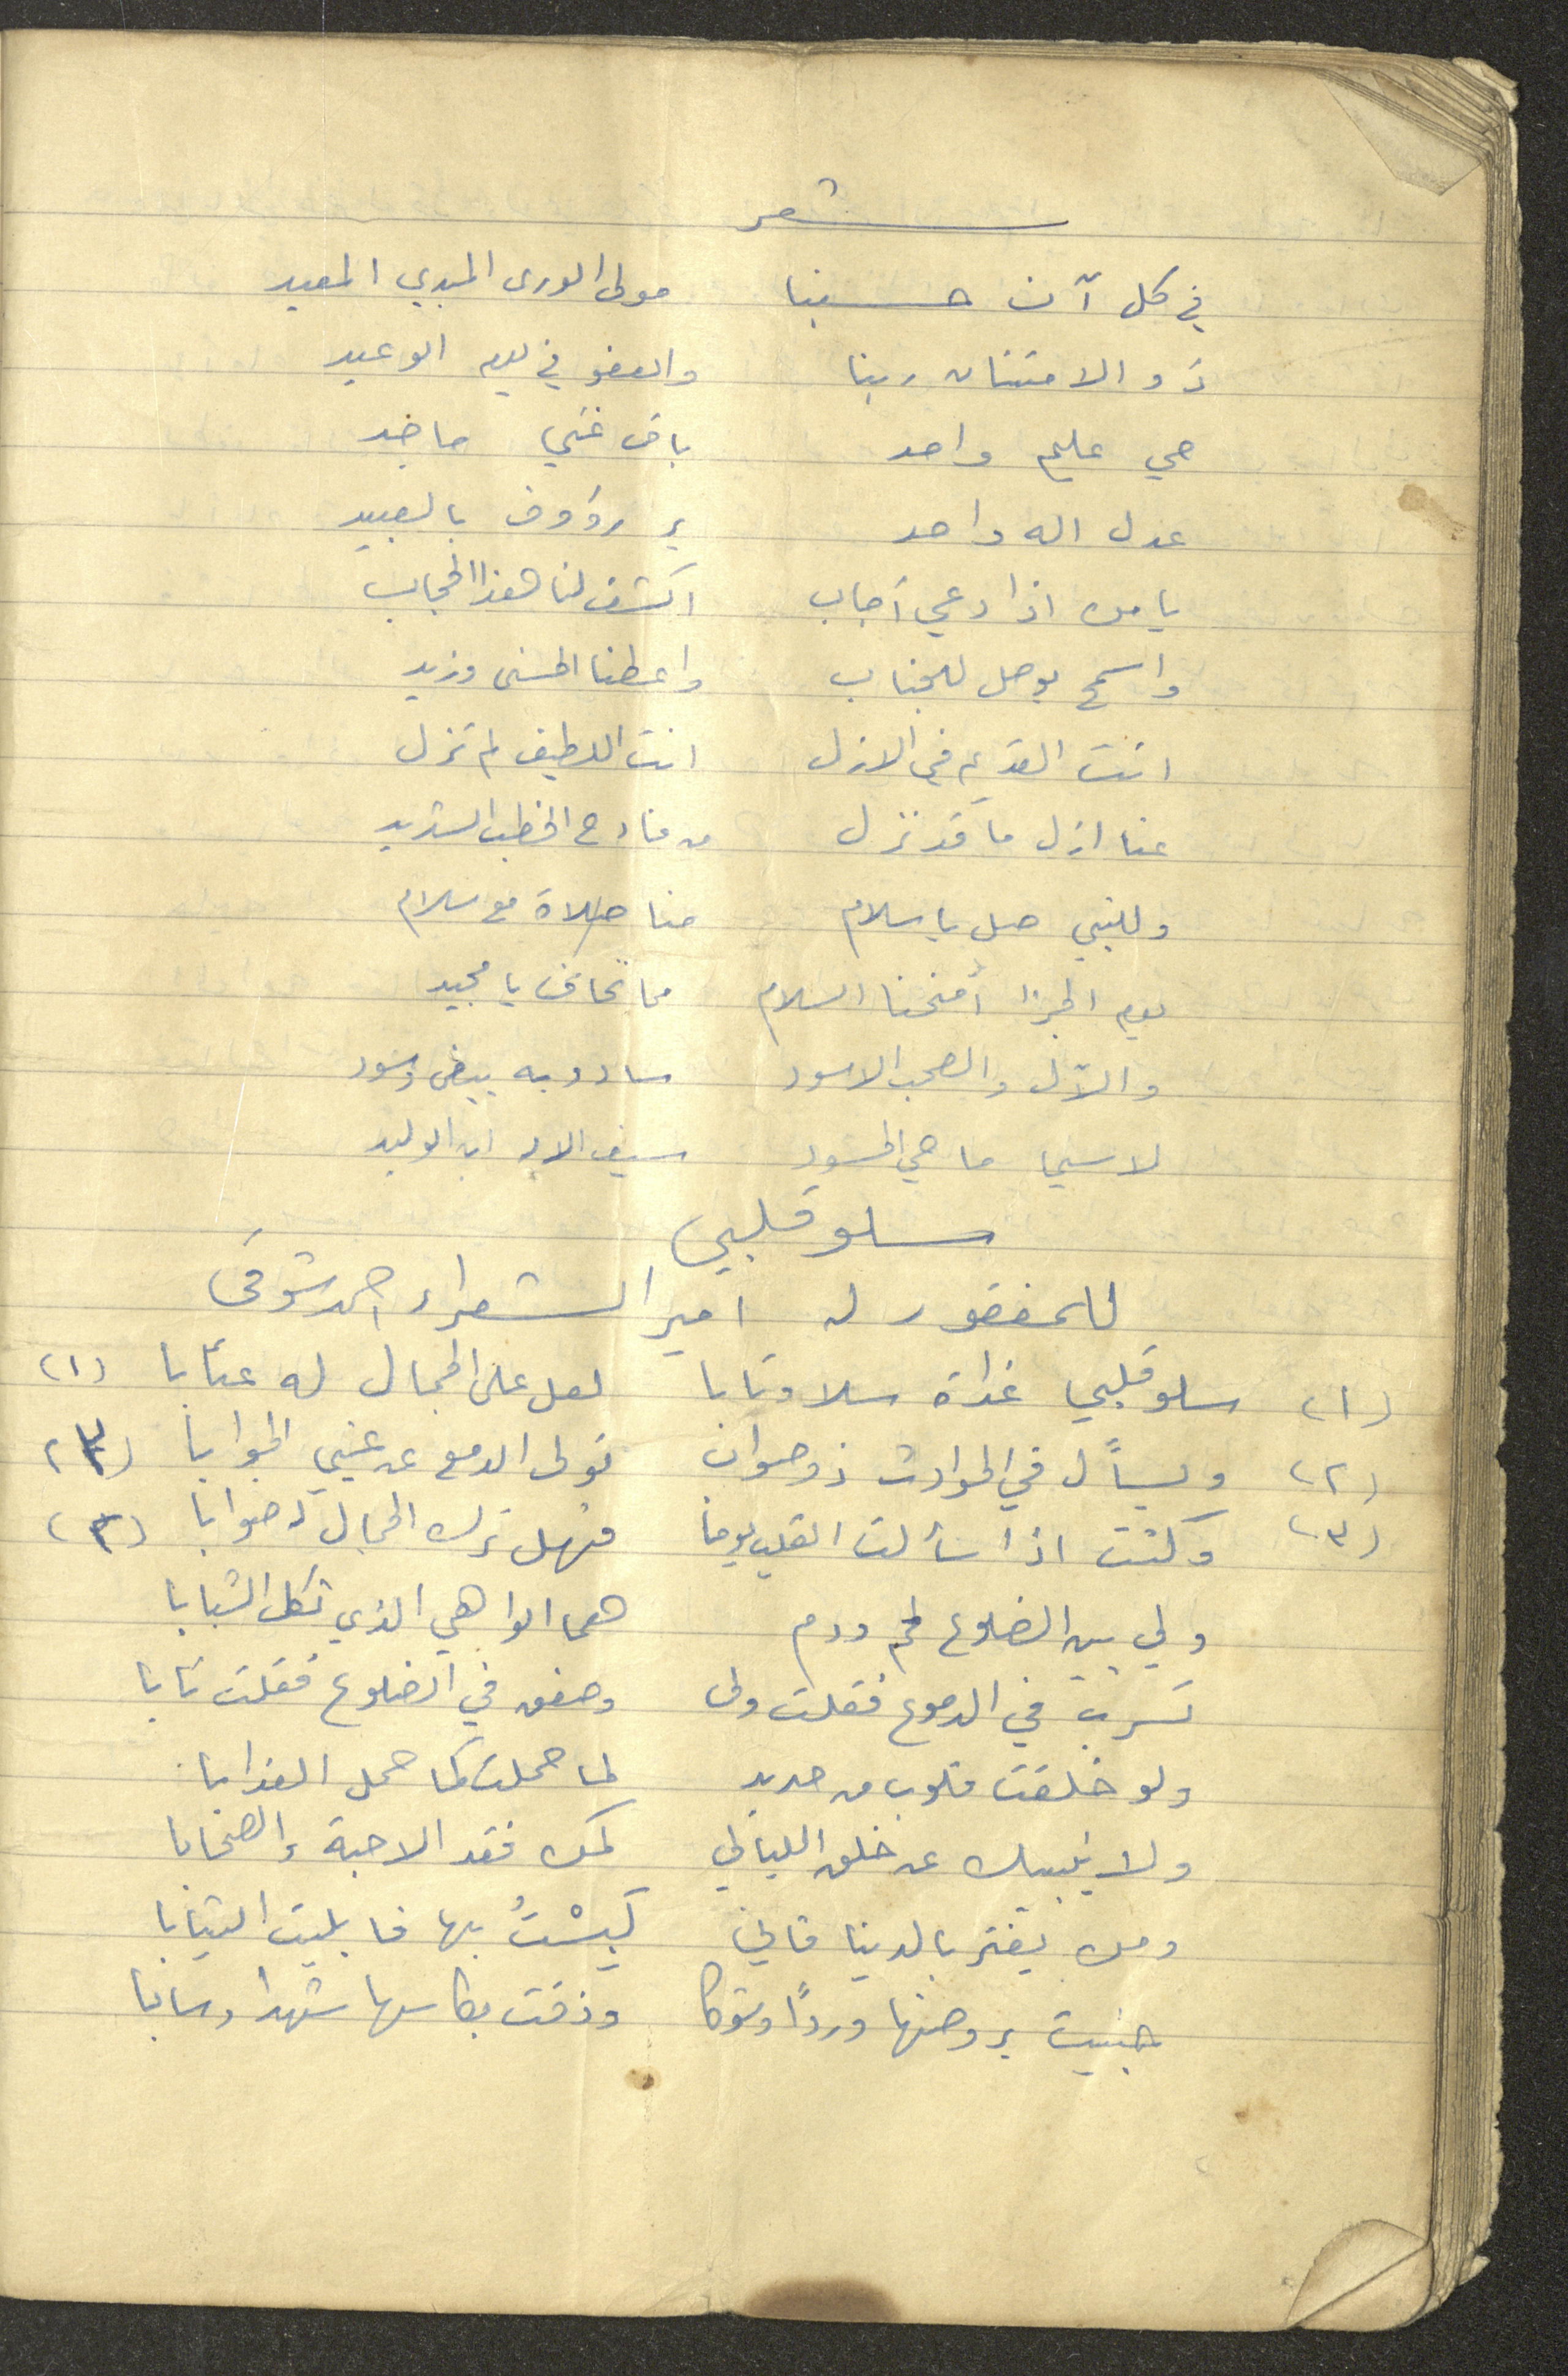 شعر
في كل آن حسبنا مولى الورى المبدي المعيد
ذو الامتنان ربنا والعفو في يوم الوعيد
حي عليم واحد باق غني ماجد
عدل اله واحد بر رؤوف بالعبيد
يا من اذا دعي أجاب اكشف لنا هذا الحجاب
واسمح بوصل للجناب واعطنا الحسنى وزيد
انت القديم في الازل انت اللطيف لم تزل
عنا ازل ما قد نزل من فادح الخطب الشديد
وللنبي صل يا سلام منا صلاة مع سلام
يوم الجزا أمنحنا السلام مما نخاف يا مجيد
والآل والصحب الاسود سادو به بيض وسود
لاسيما ماحي الحسود سيف الاله ابن الوليد
سلو قلبي
للمغفور له امير الشعراء احمد شوقي
(١) سلو قلبي غداة سلا وتابا لعل على الجمال له عتابا (١)
(٢) ويسأل في الحوادث ذو صواب تولى الدمع عن عيني الجوابا (٢)
(٣) وكنت اذا سألت القلب يوما فهل ترك الجمال له صوابا (٣)
ولي بين الضلوع لحم ودم هما الواهي الذي ثكل الشبابا
تسرب في الدموع فقلت ولى وصفق في الضلوع فقلت ثابا
ولو خلقت قلوب من حديد لما حملت كما حمل العذابا
ولا ينبيك عن خلق الليالي كمن فقد الاحبة والصحابا
ومن يغتر بالدينا فاني لَبِسْتُ بها فابليت الثيابا
جنيت بروضها ورداً وشوكا وذقت بكاسها شهدا وصابا